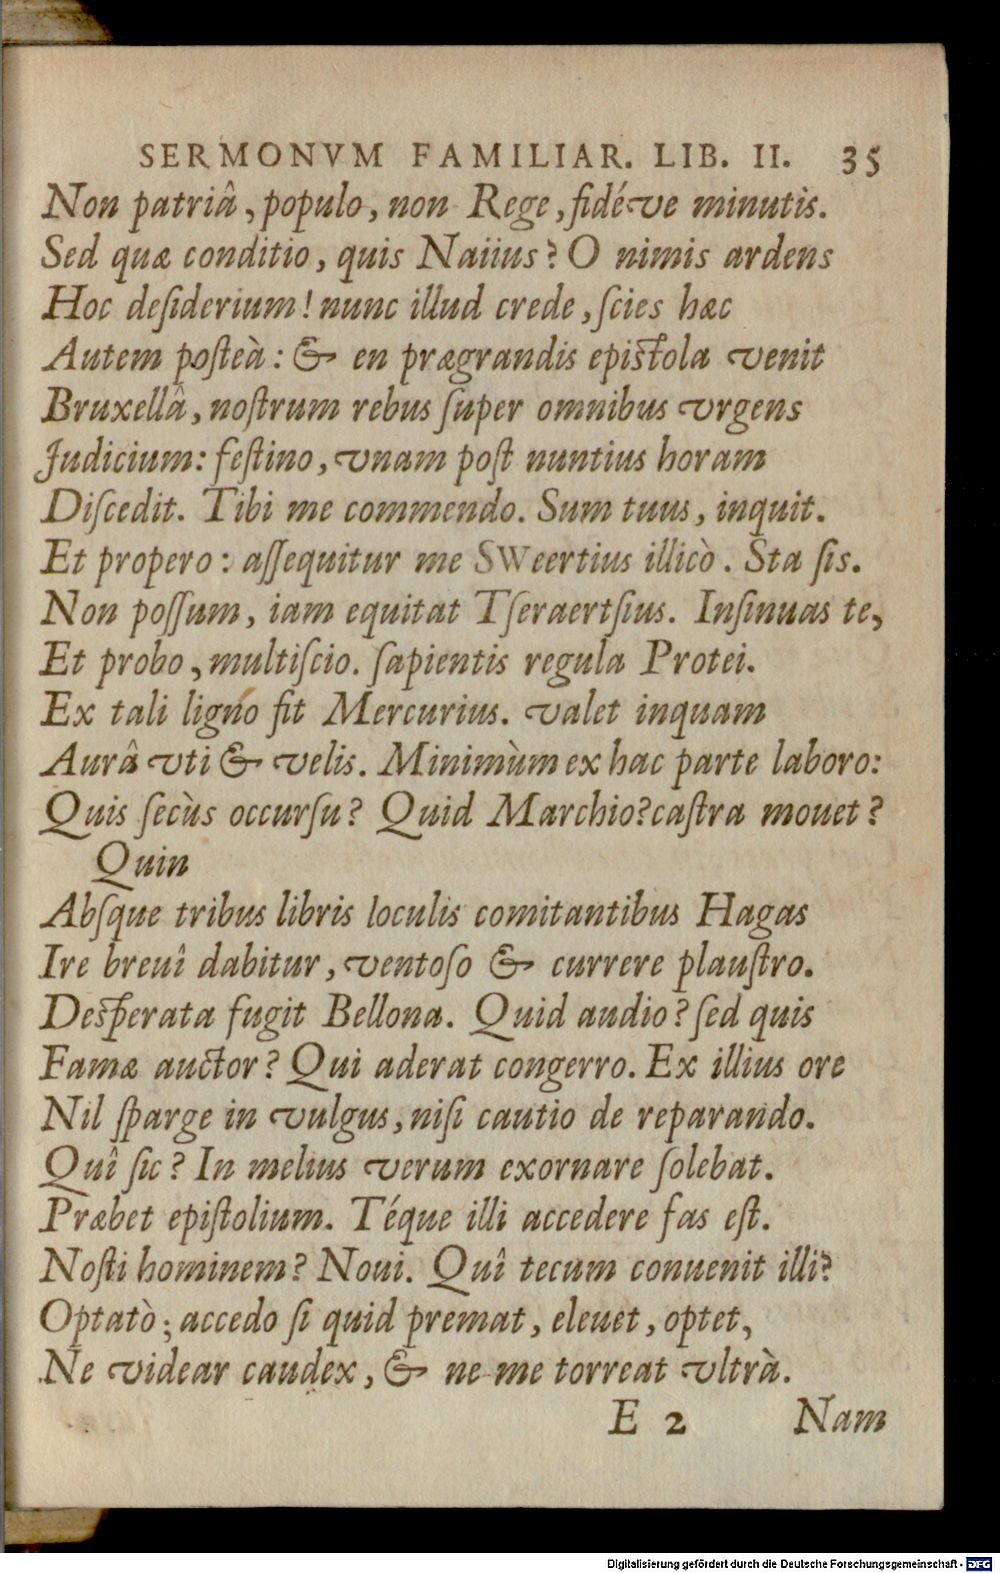 SERMONVM FAMILIAR. LIB. II. 35
Non patriâ, populo, non Rege, fidéve minutis.
Sed quæ conditio, quis Naiius? O nimis ardens
Hoc deſiderium! nunc illud crede, ſcies hæc
Autem poſteà: & en prægrandis epiſtola venit
Bruxellâ, noſtrum rebus ſuper omnibus vrgens
Judicium: feſtino, vnam poſt nuntius horam
Diſcedit. Tibi me commendo. Sum tuus, inquit.
Et propero: aſſequitur me SWeertius illicò. Sta ſis.
Non poſſum, iam equitat Tſeraertſius. Inſinuas te,
Et probo, multiſcio. ſapientis regula Protei.
Ex tali ligno fit Mercurius. valet inquam
Aurâ vti & velis. Minimùm ex hac parte laboro:
Quis ſecùs occurſu? Quid Marchio? caſtra mouet?
Quin
Abſque tribus libris loculis comitantibus Hagas
Ire breuî dabitur, ventoſo & currere plauſtro.
Deſperata fugit Bellona. Quid audio? ſed quis
Famæ auctor? Qui aderat congerro. Ex illius ore
Nil ſparge in vulgus, niſi cautio de reparando.
Quî ſic? In melius verum exornare ſolebat.
Præbet epiſtolium. Téque illi accedere fas eſt.
Noſti hominem? Noui. Quî tecum conuenit illi?
Optatò; accedo ſi quid premat, eleuet, optet,
Ne videar caudex, & ne me torreat vltrà.
E 2 Nam
Digitalisierung gefördert durch die Deutsche Forschungsgemeinschaft - DFG